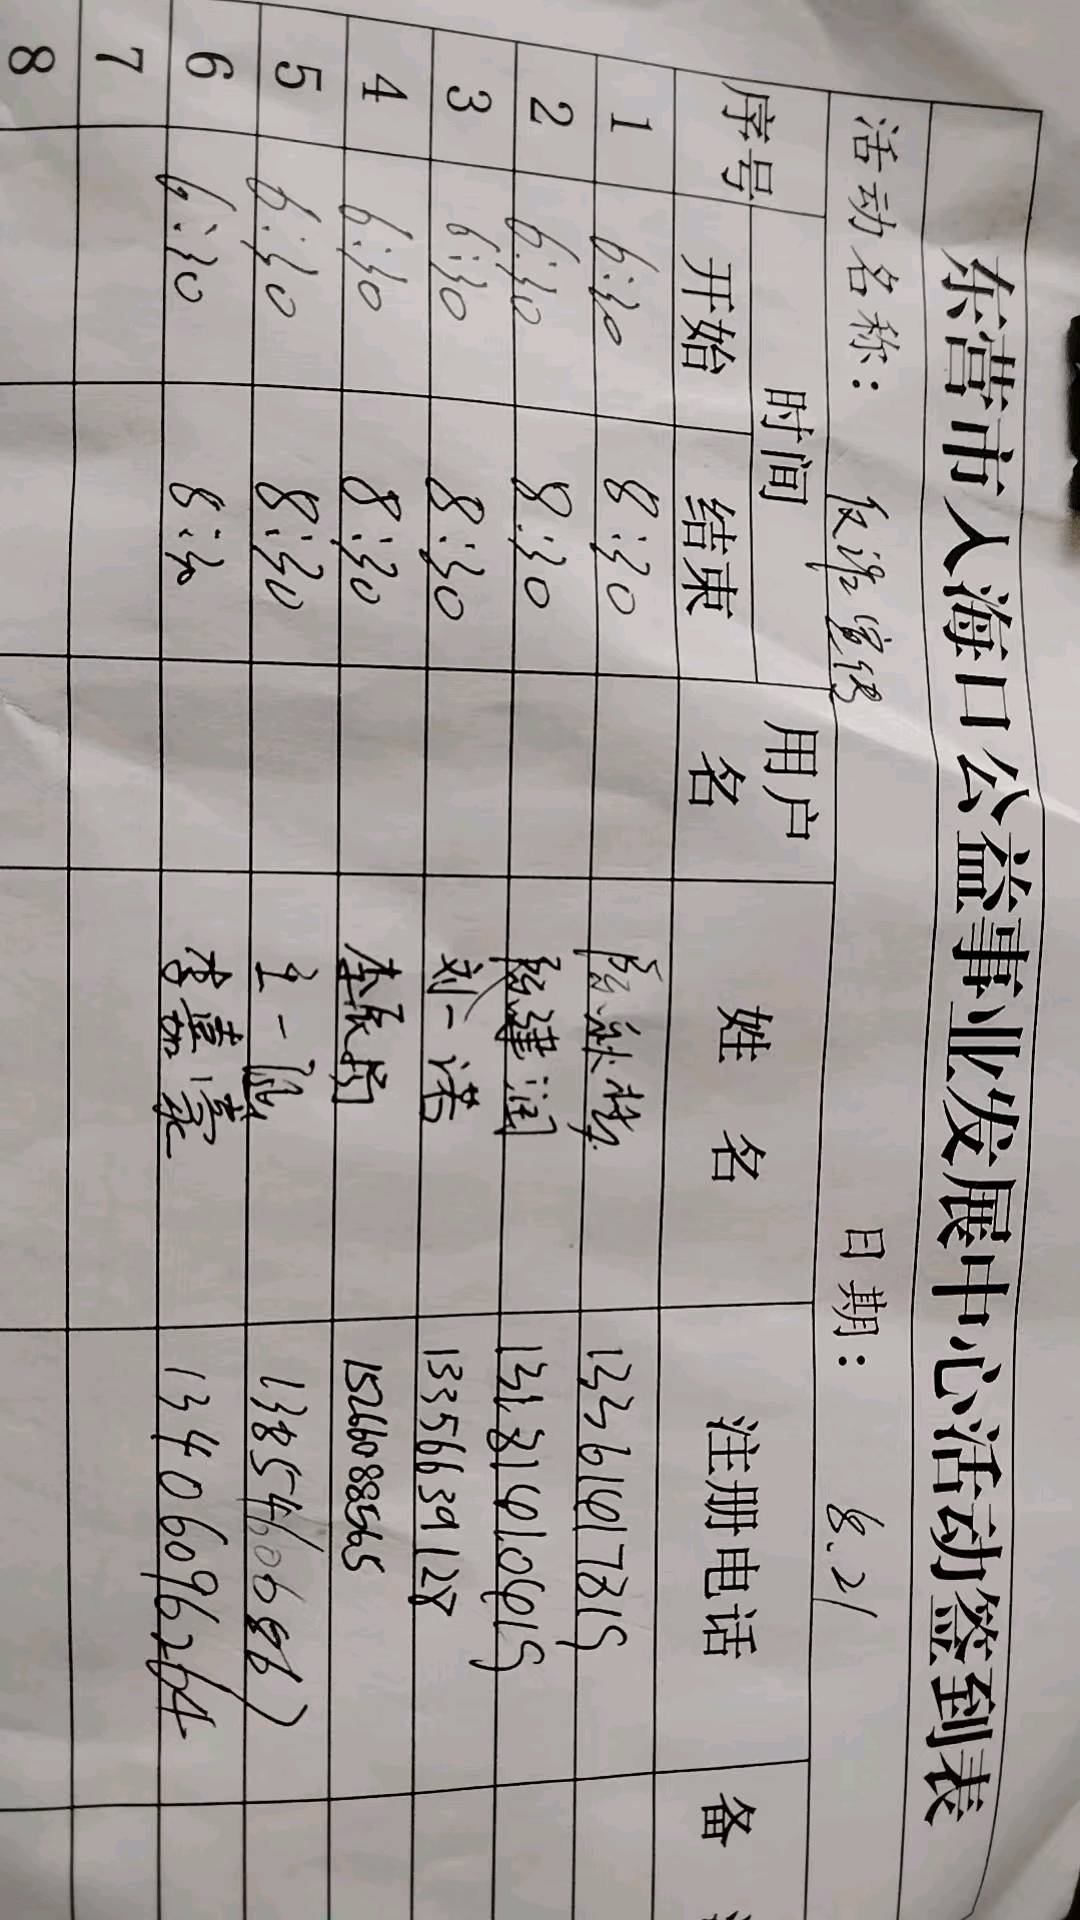 东营市入海口公益事业发展中心活动签到表
活动名称：反诈宣传 日期：8.21
序号 时间 用户名 姓名 注册电话 备
开始 结束
1 6:30 8:30 13361617815
2 6:30 8:30 陈建润
3 6:30 8:30 刘一诺 13356639128
4 6:30 8:30 15266088565
5 6:30 8:30 王一涵
6 6:30 8:30 李嘉豪 13406096264
7
8